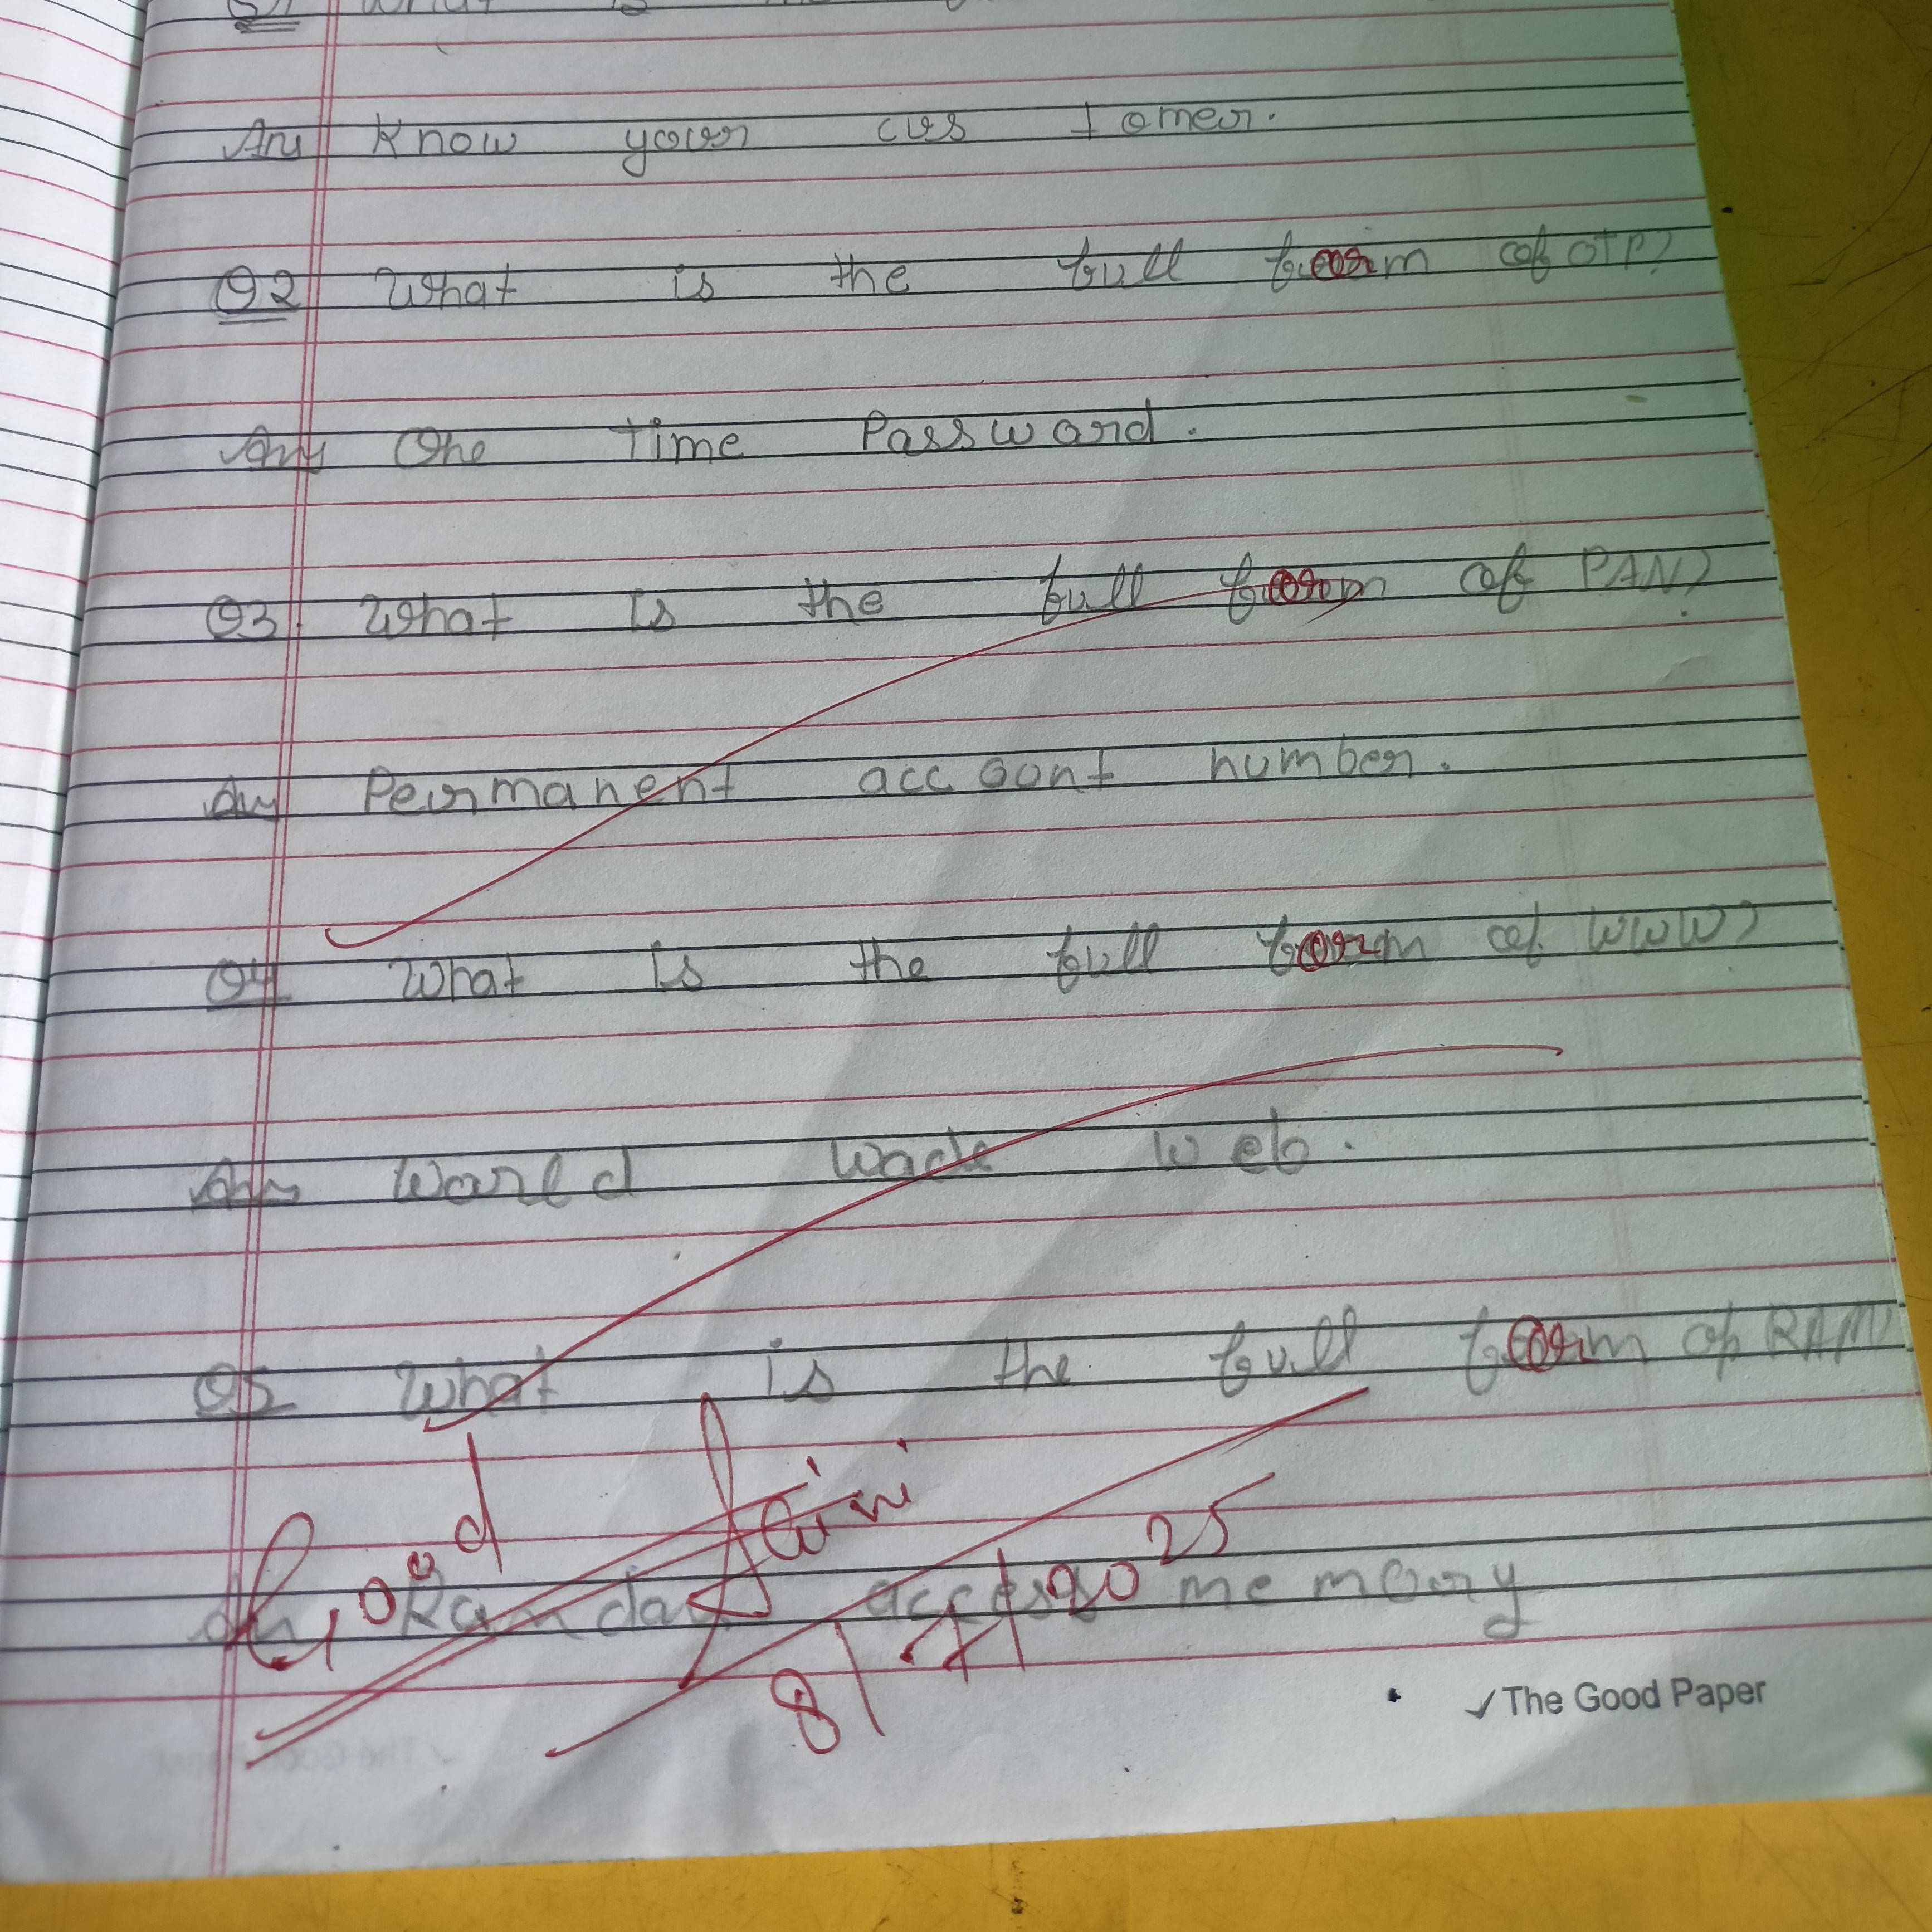 Q1 What is the
Ans Know your cus tomer.
Q2 What is the full form of OTP?
Ans One Time Password.
Q3 What is the full form of PAN?
Ans Permanent accoont number.
Q4 What is the full form of WWW?
Ans World Wade Web.
Q5 What is the full form of RAM
Ans Ramdam access memory
Good
8/7/2025
✓The Good Paper